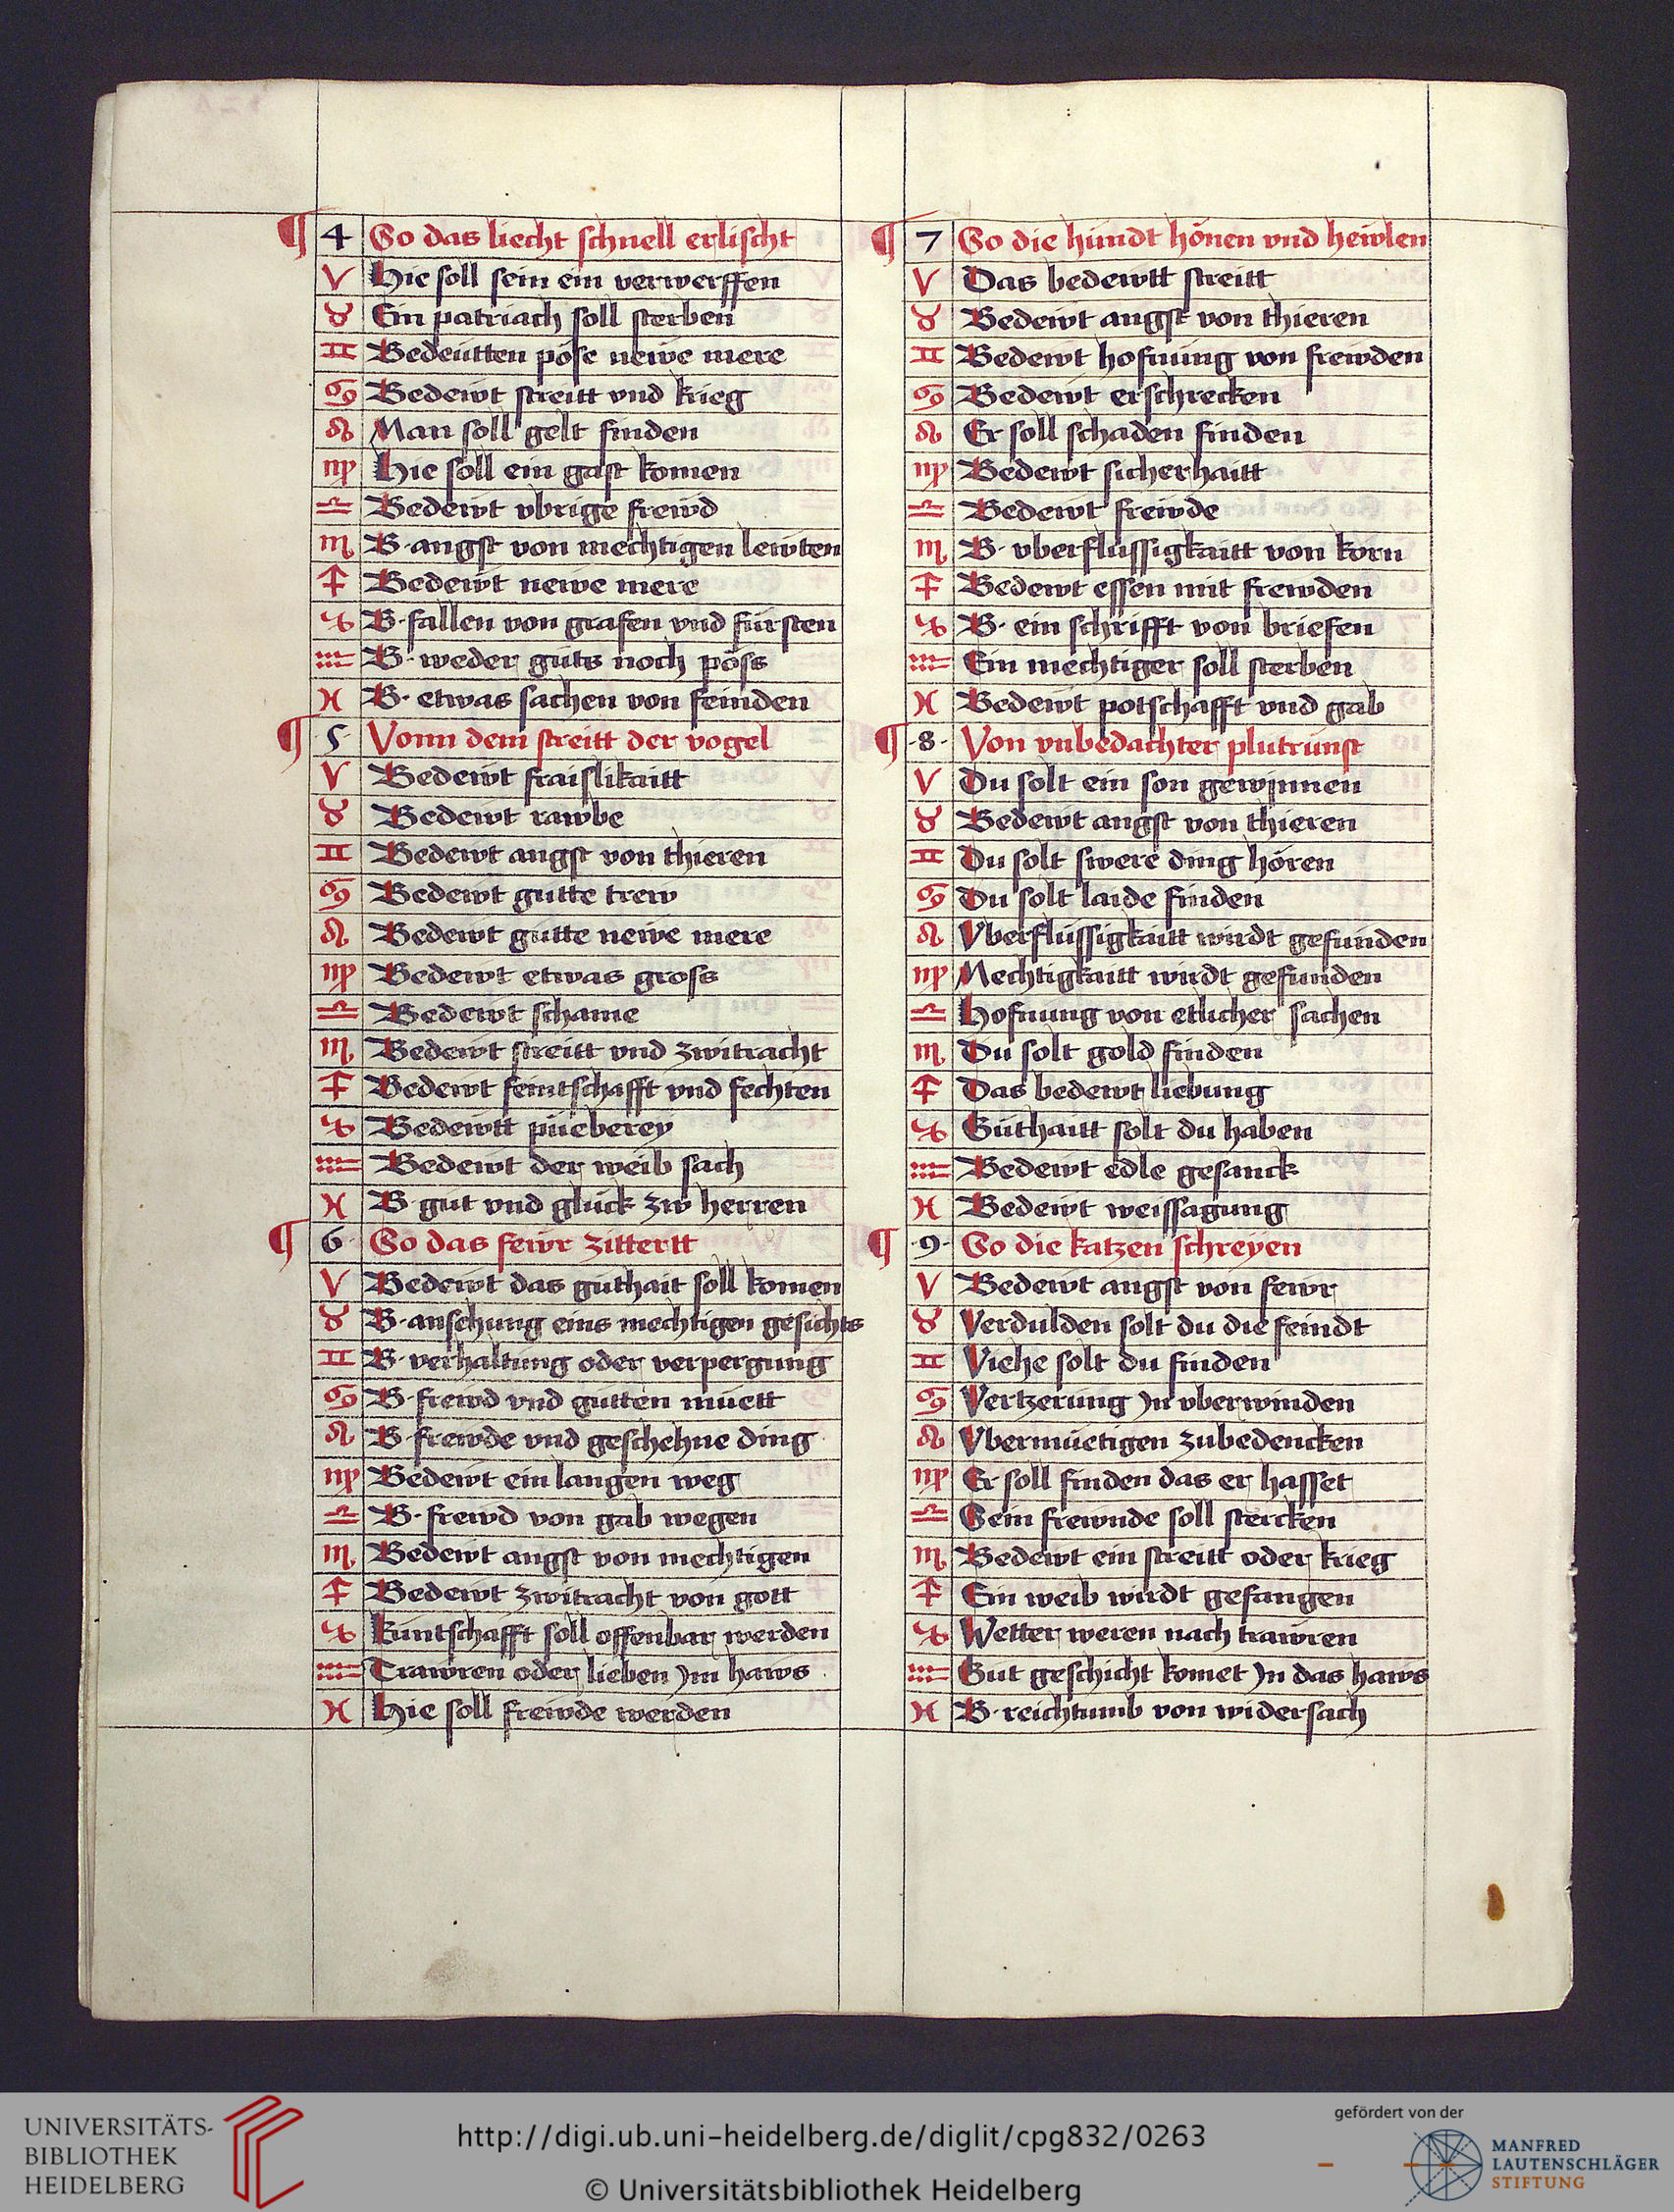 ¶ 4 So das liecht schnell erlischt
♈ Hie soll sein ein verwerffen
♉ Ein patriach soll sterben
♊ Bedeutten pöse newe mere
♋ Bedewt streitt vnd krieg
♌ Man soll gelt finden
♍ Hie soll ein gast komen
♎ Bedewt vbrige frewd
♏ B· angst von mechtigen lewten
♐ Bedewt newe mere
♑ B· fallen von grafen vnd fürsten
♒ B· weder guts noch pöss
♓ B· etwas sachen von feinden
¶ 5 Vonn dem streitt der vogel
♈ Bedewt fraislikaitt
♉ Bedewt rawbe
♊ Bedewt angst von thieren
♋ Bedewt gutte trew
♌ Bedewt gutte newe mere
♍ Bedewt etwas gross
♎ Bedewt schame
♏ Bedewt streitt vnd zwitracht
♐ Bedewt feintschafft vnd fechten
♑ Bedewtt püeberey
♒ Bedewt der weib sach
♓ B· gut vnd glück zw herren
¶ 6 So das fewr zittertt
♈ Bedewt das guthait soll komen
♉ B· ansehung eins mechtigen gesichts
♊ B· verhaltung oder verpergung
♋ B· frewd vnd gutten muett
♌ B· frewde vnd geschehne ding
♍ Bedewt ein langen weg
♎ B· frewd von gab wegen
♏ Bedewt angst von mechtigen
♐ Bedewt zwitracht von gott
♑ Kuntschafft soll offenbar werden
♒ Trawren oder lieben Jm haws
♓ Hie soll frewde werden
¶ 7 So die hundt hönen vnd hewlen
♈ Das bedewtt streitt
♉ Bedewt angst von thieren
♊ Bedewt hofnung von frewden
♋ Bedewt erschrecken
♌ Er soll schaden finden
♍ Bedewt sicherhaitt
♎ Bedewt frewde
♏ B· vberflussigkaitt von korn
♐ Bedewt essen mit frewden
♑ B· ein schrifft von briefen
♒ Ein mechtiger soll sterben
♓ Bedewt potschafft vnd gab
¶ ·8· Von vnbedachter plutrunst
♈ Du solt ein son gewinnen
♉ Bedewt angst von thieren
♊ Du solt swere ding hören
♋ Du solt laide finden
♌ Vberflussigkaitt wirdt gefunden
♍ Mechtigkaitt wirdt gefunden
♎ Hofnung von etlicher sachen
♏ Du solt gold finden
♐ Das bedewt liebung
♑ Guthaitt solt du haben
♒ Bedewt edle gesanck
♓ Bedewt weissagung
¶ ·9· So die katzen schreyen
♈ Bedewt angst von fewr
♉ Verdulden solt du die feindt
♊ Viehe solt du finden
♋ Vertzerung Jn vberwinden
♌ Vbermüetigen zubedencken
♍ Er soll finden das er hasset
♎ Sein frewnde soll stercken
♏ Bedewt ein streitt oder krieg
♐ Ein weib wirdt gefangen
♑ Wetter weren nach trawren
♒ Gut geschicht komet Jn das haws
♓ B· reichtumb von widersach
UNIVERSITÄTS-
BIBLIOTHEK
HEIDELBERG
http://digi.ub.uni-heidelberg.de/diglit/cpg832/0263
© Universitätsbibliothek Heidelberg
gefördert von der
MANFRED
LAUTENSCHLÄGER
STIFTUNG